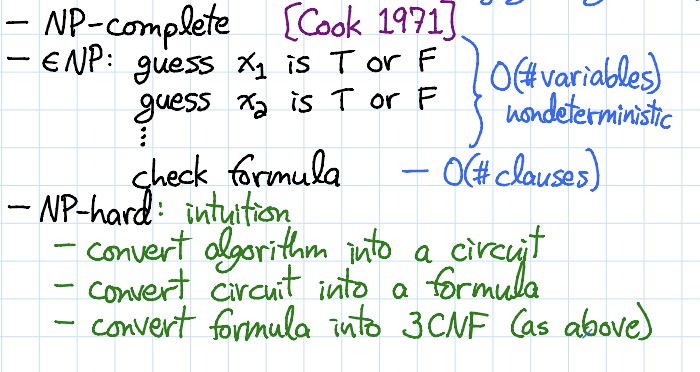 – NP-complete [Cook 1971]
– ∈NP: guess x₁ is T or F
guess x₂ is T or F
⋮
O(#variables)
nondeterministic
check formula – O(#clauses)
– NP-hard: intuition
– convert algorithm into a circuit
– convert circuit into a formula
– convert formula into 3CNF (as above)